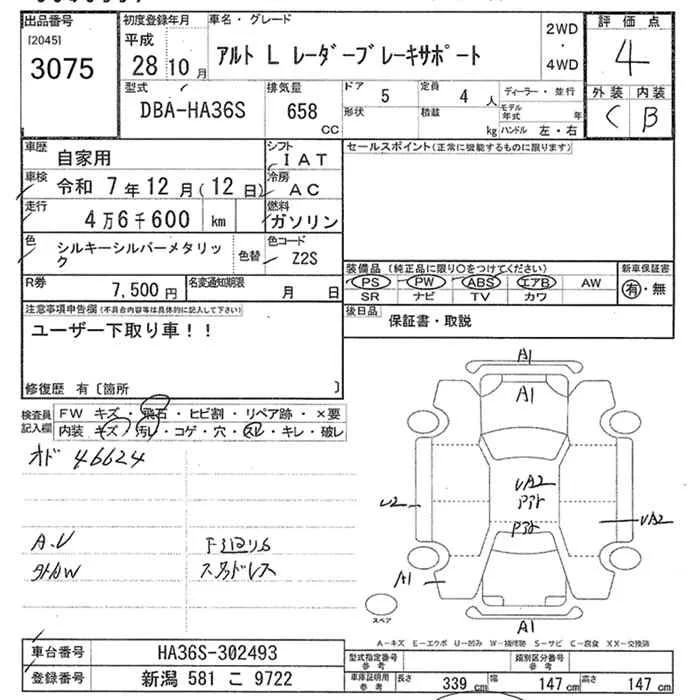 出品番号 初度登録年月 車名・グレード 評価点
[2045] 平成 アルト L レーダーブレーキサポート 2WD・4WD 4
3075 28年10月
型式 排気量 ドア 5 定員 4人 ディーラー・並行 外装 内装
DBA-HA36S 658cc 形状 積載 kg モデル年式 年 ハンドル 左・右 C B
車歴 自家用 シフト IAT セールスポイント(正常に機能するものに限ります)
車検 令和 7年12月(12日) 冷房 AC
走行 4万6千600 km 燃料 ガソリン
色 シルキーシルバーメタリック 色替 色コード Z2S
装備品 (純正品に限り○をつけてください) 新車保証書
PS PW ABS エアB AW 有・無
SR ナビ TV カワ
R券 7,500円 名変通知期限 月 日
後日品 保証書・取説
注意事項申告欄(不具合内容等は具体的に記入して下さい)
ユーザー下取り車!!
修復歴 有〔箇所 〕
検査員記入欄 FW キズ・飛石・ヒビ割・リペア跡・×要
内装 キズ・汚レ・コゲ・穴・スレ・キレ・破レ
オド 46624
A1
A1
UA2
U2
UA2
A1
A1
A.U
スタッドレス
スペア
A-キズ E-エクボ U-凹み W-補修跡 S-サビ C-腐食 XX-交換跡
車台番号 HA36S-302493
型式指定番号 参考 類別区分番号 参考
登録番号 新潟 581 こ 9722
車庫証明用 参考 長さ 339cm 幅 147cm 高さ 147cm